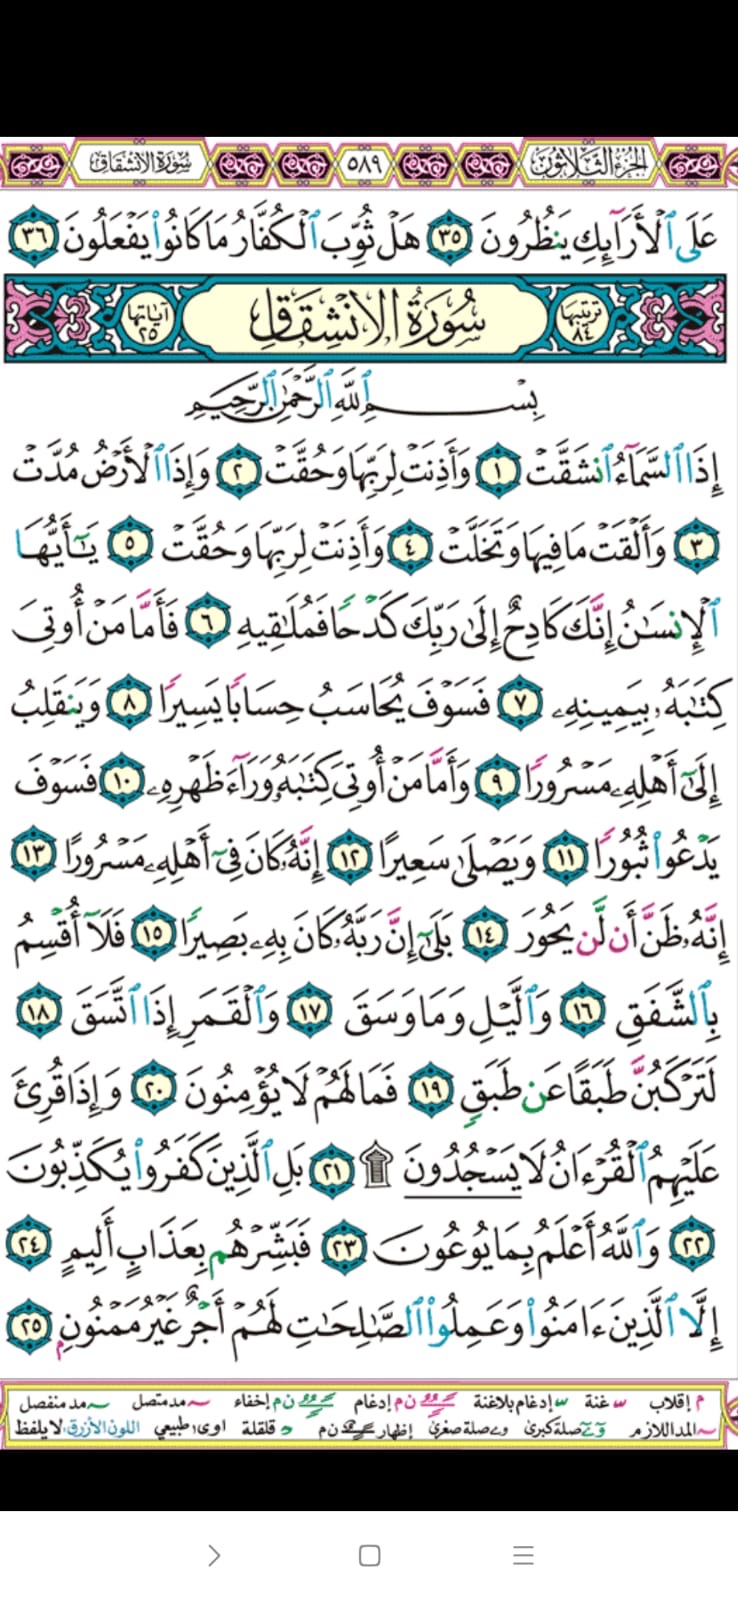 الجزء الثلاثون ٥٨٩ سورة الانشقاق
عَلَى ٱلْأَرَآئِكِ يَنظُرُونَ ٣٥ هَلْ ثُوِّبَ ٱلْكُفَّارُ مَا كَانُوا۟ يَفْعَلُونَ ٣٦
ترتيبها ٨٤ سُورَةُ الانْشِقَاقِ آياتها ٢٥
بِسْمِ ٱللَّهِ ٱلرَّحْمَٰنِ ٱلرَّحِيمِ
إِذَا ٱلسَّمَآءُ ٱنشَقَّتْ ١ وَأَذِنَتْ لِرَبِّهَا وَحُقَّتْ ٢ وَإِذَا ٱلْأَرْضُ مُدَّتْ
٣ وَأَلْقَتْ مَا فِيهَا وَتَخَلَّتْ ٤ وَأَذِنَتْ لِرَبِّهَا وَحُقَّتْ ٥ يَٰٓأَيُّهَا
ٱلْإِنسَٰنُ إِنَّكَ كَادِحٌ إِلَىٰ رَبِّكَ كَدْحًا فَمُلَٰقِيهِ ٦ فَأَمَّا مَنْ أُوتِىَ
كِتَٰبَهُۥ بِيَمِينِهِۦ ٧ فَسَوْفَ يُحَاسَبُ حِسَابًا يَسِيرًا ٨ وَيَنقَلِبُ
إِلَىٰٓ أَهْلِهِۦ مَسْرُورًا ٩ وَأَمَّا مَنْ أُوتِىَ كِتَٰبَهُۥ وَرَآءَ ظَهْرِهِۦ ١٠ فَسَوْفَ
يَدْعُوا۟ ثُبُورًا ١١ وَيَصْلَىٰ سَعِيرًا ١٢ إِنَّهُۥ كَانَ فِىٓ أَهْلِهِۦ مَسْرُورًا ١٣
إِنَّهُۥ ظَنَّ أَن لَّن يَحُورَ ١٤ بَلَىٰٓ إِنَّ رَبَّهُۥ كَانَ بِهِۦ بَصِيرًا ١٥ فَلَآ أُقْسِمُ
بِٱلشَّفَقِ ١٦ وَٱلَّيْلِ وَمَا وَسَقَ ١٧ وَٱلْقَمَرِ إِذَا ٱتَّسَقَ ١٨
لَتَرْكَبُنَّ طَبَقًا عَن طَبَقٍ ١٩ فَمَا لَهُمْ لَا يُؤْمِنُونَ ٢٠ وَإِذَا قُرِئَ
عَلَيْهِمُ ٱلْقُرْءَانُ لَا يَسْجُدُونَ ۩ ٢١ بَلِ ٱلَّذِينَ كَفَرُوا۟ يُكَذِّبُونَ
٢٢ وَٱللَّهُ أَعْلَمُ بِمَا يُوعُونَ ٢٣ فَبَشِّرْهُم بِعَذَابٍ أَلِيمٍ ٢٤
إِلَّا ٱلَّذِينَ ءَامَنُوا۟ وَعَمِلُوا۟ ٱلصَّالِحَاتِ لَهُمْ أَجْرٌ غَيْرُ مَمْنُونٍۭ ٢٥
م إقلاب غنة إدغام بلاغنة ن م إدغام ن م إخفاء مد متصل مد منفصل
المد اللازم صلة كبرى صلة صغرى إظهار ن م قلقلة اوى طبيعي اللون الأزرق لا يلفظ